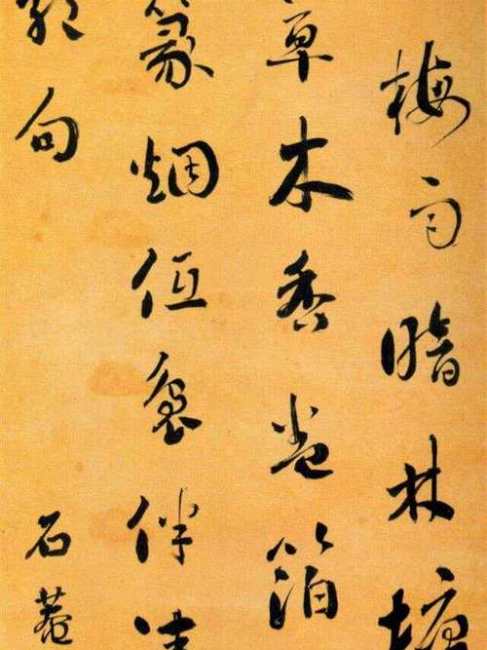 梅雨暗林塘
草木香卷箔
篆烟低裊伴
句
石菴